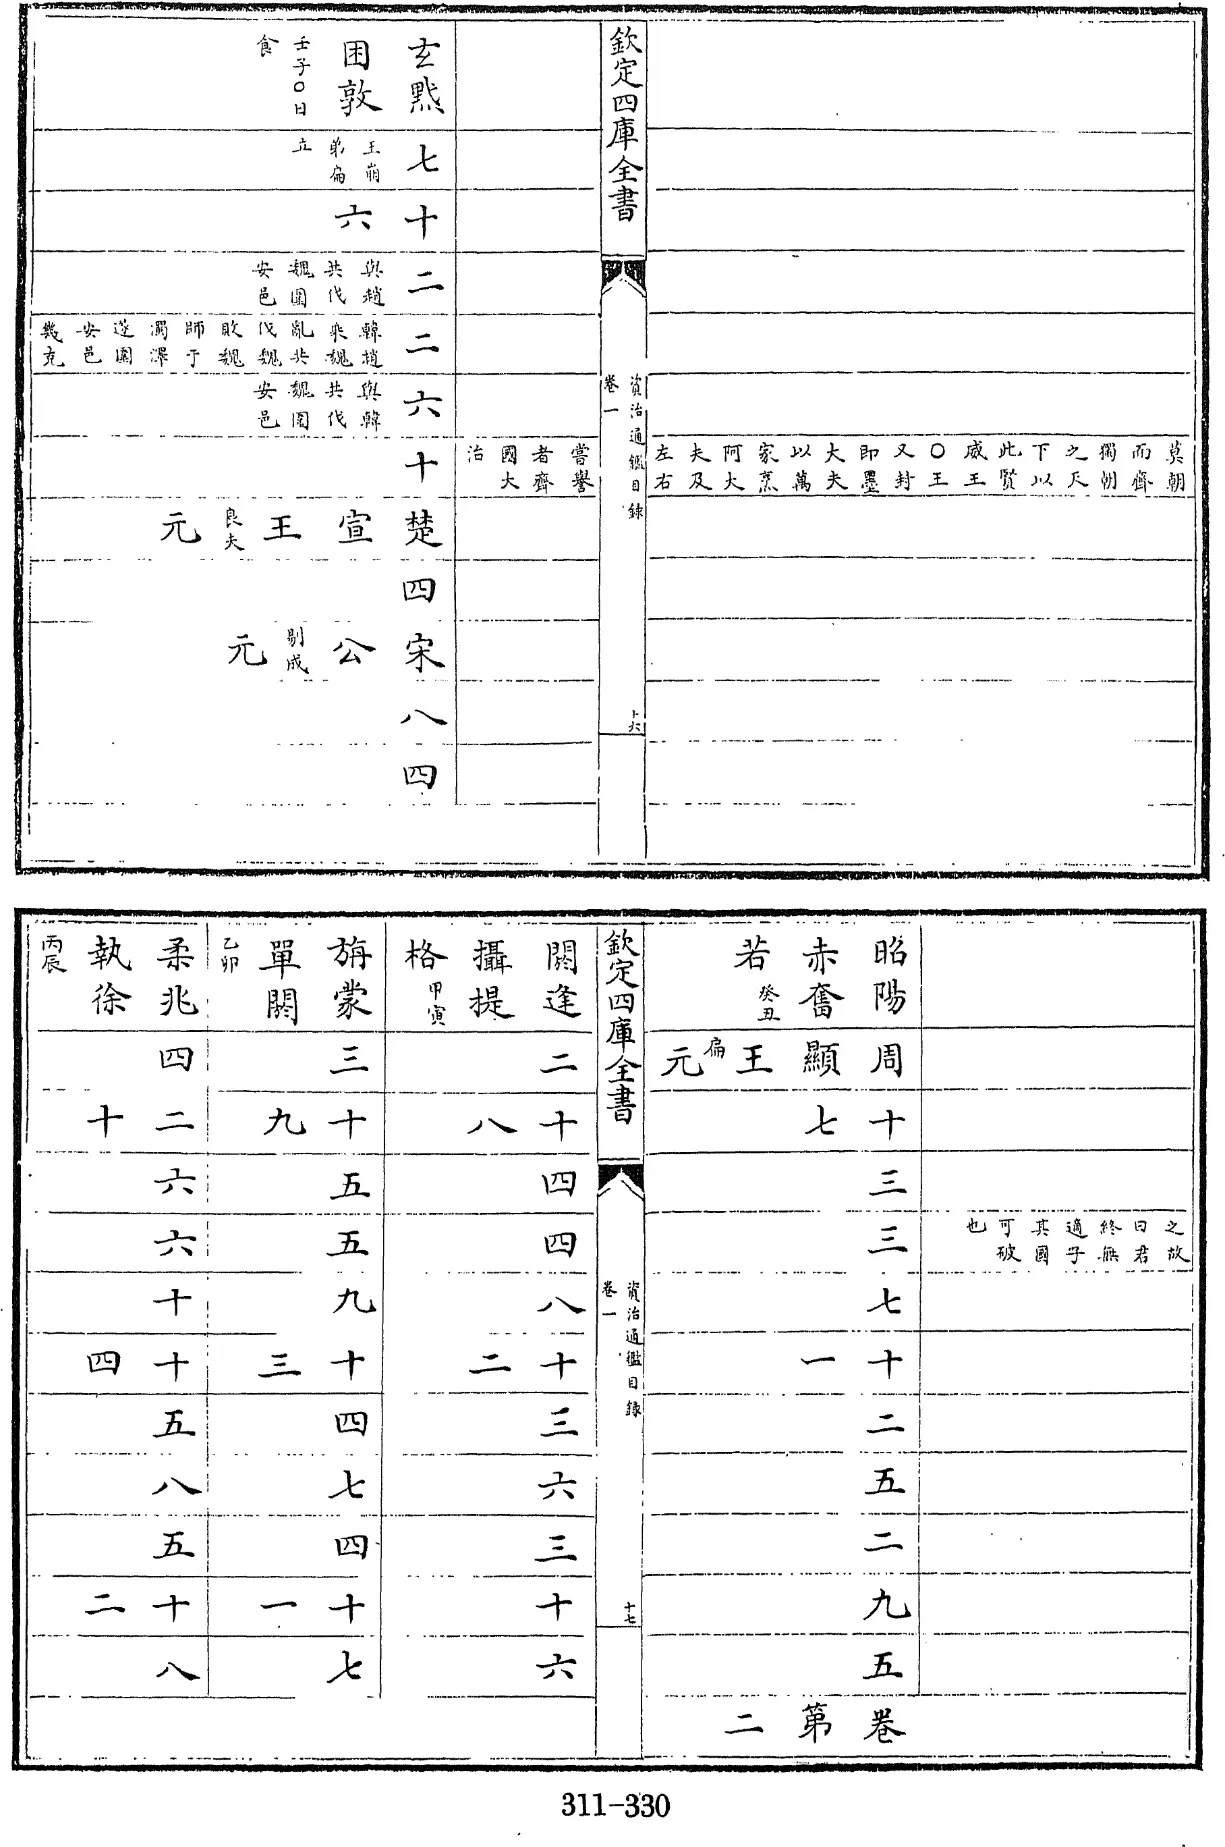 莫朝而齊獨朝之天下以此賢威王〇王又封即墨大夫以萬家烹阿大夫及左右
欽定四庫全書
資治通鑑目錄
卷一
十六
嘗譽者齊國大治
玄黓困敦壬子〇日食
七王崩弟扁立
十六
二與趙共伐魏圍安邑
二韓趙乘魏亂共伐魏敗魏師于濁澤遂圍安邑幾克
六與韓共伐魏圍安邑
十
楚宣王良夫元
四
宋公剔成元
八
四
之故曰君終無適子其國可破也
昭陽赤奮若癸丑
周顯王扁元
十七
三
三
七
十一
二
五
二
九
五
卷第二
欽定四庫全書
資治通鑑目錄
卷一
十七
閼逢攝提格甲寅
二
十八
四
四
八
十二
三
六
三
十
六
旃蒙單閼乙卯
三
十九
五
五
九
十三
四
七
四
十一
七
柔兆執徐丙辰
四
二十
六
六
十
十四
五
八
五
十二
八
311-330